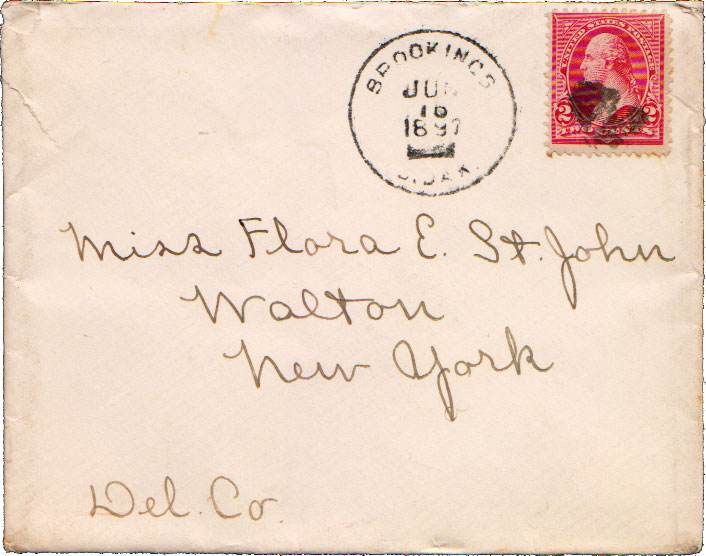 BROOKINGS
JUN
1897
S.DAK.
UNITED STATES POSTAGE
2 2
Miss Flora E. St. John
Walton
New York
Del. Co.